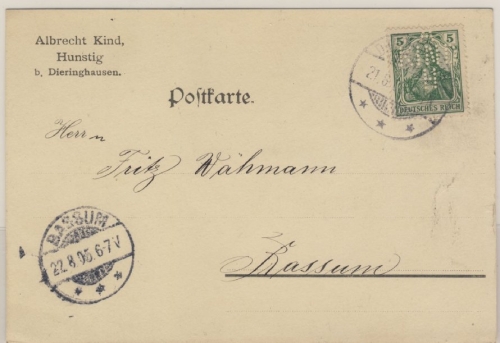 Albrecht Kind,
Hunstig
b. Dieringhausen.
5 5
DEUTSCHES REICH
21.8
Postkarte.
Herrn
Fritz Wähmann
Bassum
BASSUM
22.8.05.6-7V